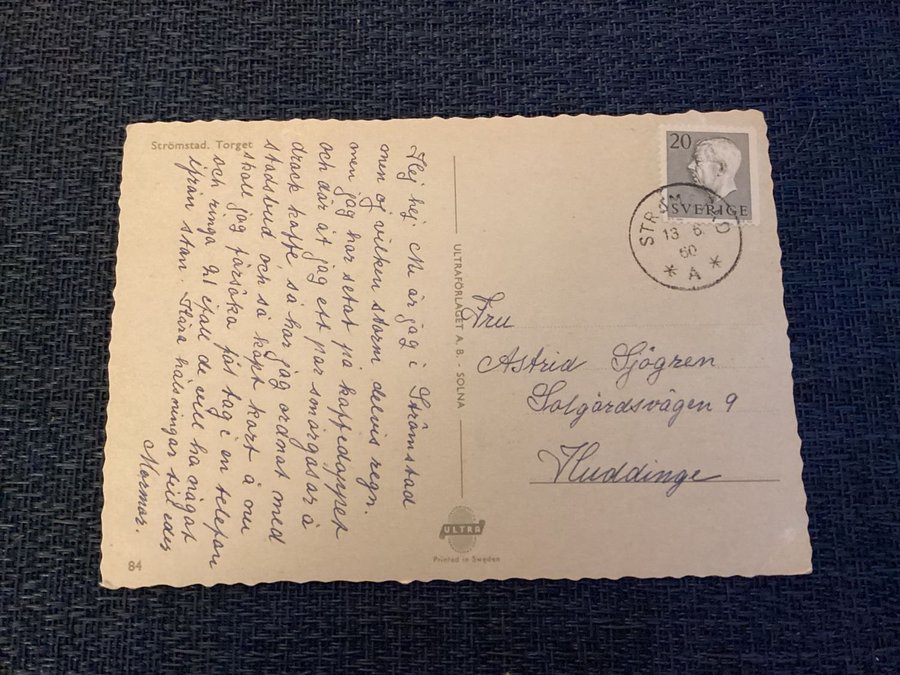 Strömstad. Torget
Hej hej Nu är jag i Strömstad
men oj vilken storm, delvis regn.
men jag har setat på kaffedoppet
och där åt jag ett par smörgåsar å
drack kaffe, så har jag ordnat med
stadsbud och så köpt kort å nu
skall jag försöka fås tag i en telefon
och ringa G ifall de vill ha något
ifrån stan. Kära hälsningar till eder
Mormor.
84
ULTRAFÖRLAGET A. B. - SOLNA
ULTRA
Printed in Sweden
20
SVERIGE
STRÖMSTAD
13 6
60
* A *
Fru
Astrid Sjögren
Solgårdsvägen 9
Huddinge